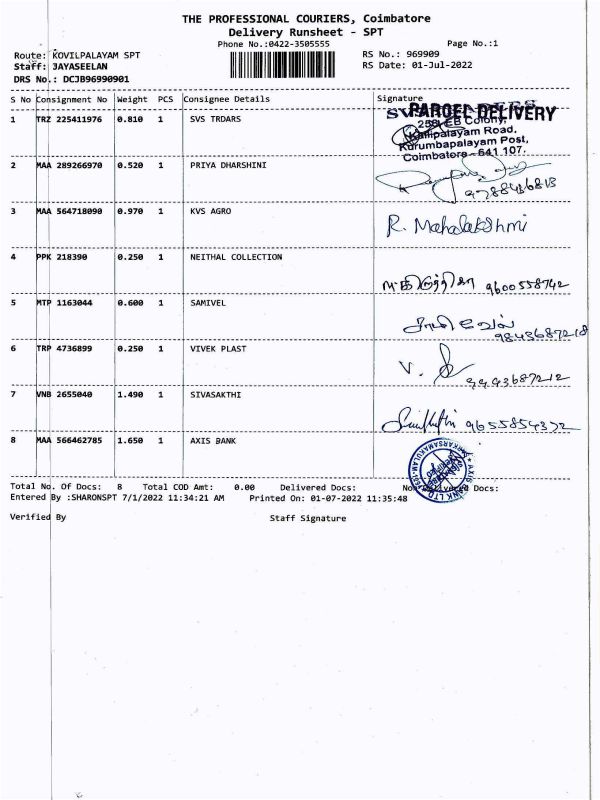 THE PROFESSIONAL COURIERS, Coimbatore
Delivery Runsheet - SPT
Phone No.:0422-3505555
Page No.:1
Route: KOVILPALAYAM SPT
RS No.: 969909
Staff: JAYASEELAN
RS Date: 01-Jul-2022
DRS No.: DCJB96990901
S No Consignment No Weight PCS Consignee Details Signature
1 TRZ 225411976 0.810 1 SVS TRDARS
PARCEL DELIVERY
EB Colony,
Kalipalayam Road,
Kurumbapalayam Post,
Coimbatore - 641 107.
2 MAA 289266970 0.520 1 PRIYA DHARSHINI
9788436813
3 MAA 564718090 0.970 1 KVS AGRO R. Mahalakshmi
4 PPK 218390 0.250 1 NEITHAL COLLECTION
9600558742
5 MTP 1163044 0.600 1 SAMIVEL
9843687218
6 TRP 4736899 0.250 1 VIVEK PLAST
V.
7 VNB 2655040 1.490 1 SIVASAKTHI
9655854372
8 MAA 566462785 1.650 1 AXIS BANK
Total No. Of Docs: 8 Total COD Amt: 0.00 Delivered Docs: Docs:
Entered By :SHARONSPT 7/1/2022 11:34:21 AM Printed On: 01-07-2022 11:35:48
Verified By Staff Signature